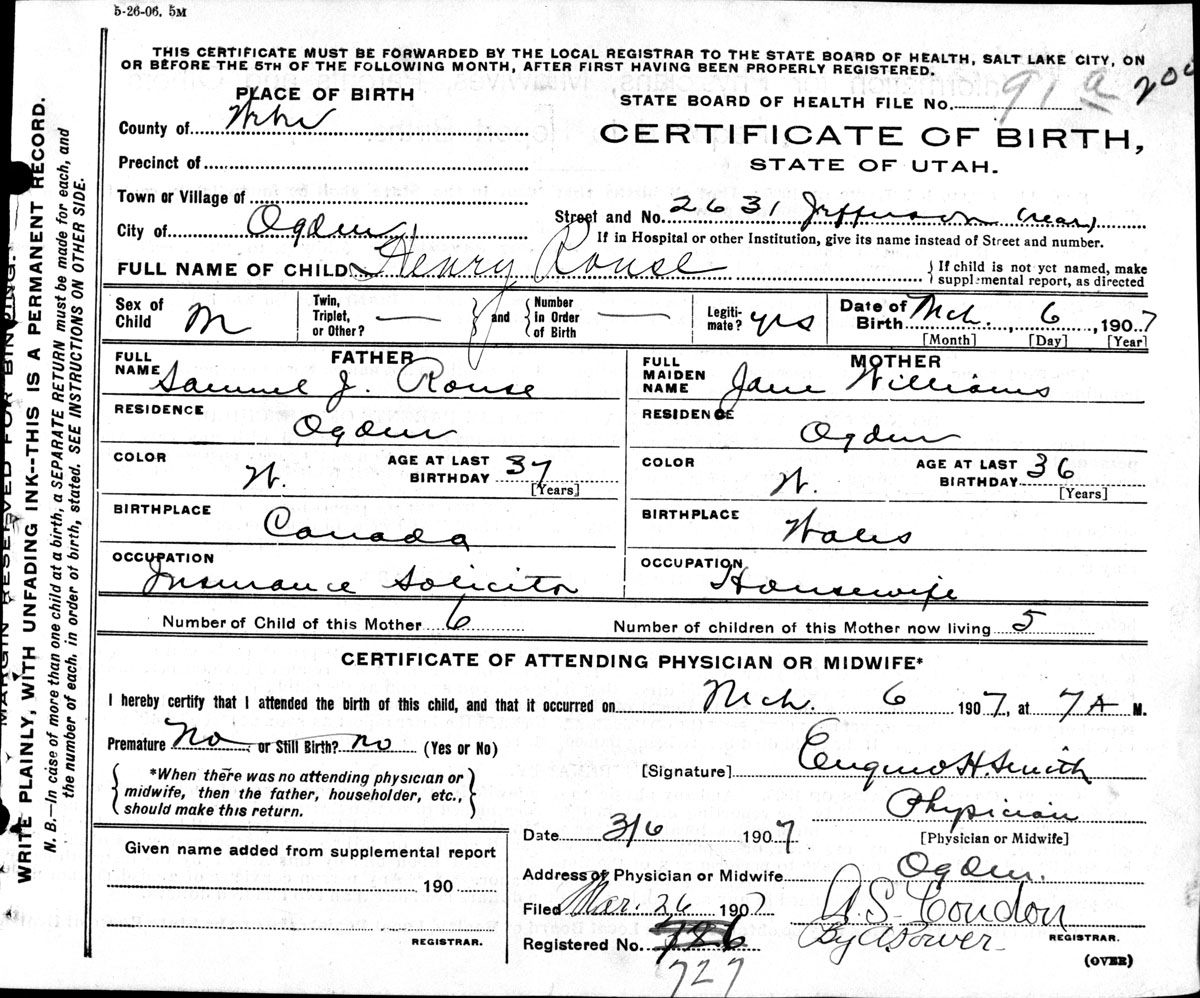 5-26-06. 5M
THIS CERTIFICATE MUST BE FORWARDED BY THE LOCAL REGISTRAR TO THE STATE BOARD OF HEALTH, SALT LAKE CITY, ON
OR BEFORE THE 5TH OF THE FOLLOWING MONTH, AFTER FIRST HAVING BEEN PROPERLY REGISTERED.
MARGIN RESERVED FOR BINDING.
WRITE PLAINLY, WITH UNFADING INK--THIS IS A PERMANENT RECORD.
N. B.—In case of more than one child at a birth, a SEPARATE RETURN must be made for each, and
the number of each, in order of birth, stated. SEE INSTRUCTIONS ON OTHER SIDE.
PLACE OF BIRTH
County of Weber
Precinct of
Town or Village of
City of Ogden
STATE BOARD OF HEALTH FILE No. 91 a 200
CERTIFICATE OF BIRTH,
STATE OF UTAH.
Street and No. 2631 Jefferson (rear)
If in Hospital or other Institution, give its name instead of Street and number.
FULL NAME OF CHILD Henry Rouse
If child is not yet named, make
supplemental report, as directed
Sex of Child M
Twin, Triplet, or Other? —
and
Number in Order of Birth —
Legitimate? yes
Date of Birth Mch. 6, 1907
[Month] [Day] [Year]
FATHER
FULL NAME Samuel J. Rouse
RESIDENCE Ogden
COLOR W. AGE AT LAST BIRTHDAY 37
[Years]
BIRTHPLACE Canada
OCCUPATION Insurance Solicitor
MOTHER
FULL MAIDEN NAME Jane Williams
RESIDENCE Ogden
COLOR W. AGE AT LAST BIRTHDAY 36
[Years]
BIRTHPLACE Wales
OCCUPATION Housewife
Number of Child of this Mother 6 Number of children of this Mother now living 5
CERTIFICATE OF ATTENDING PHYSICIAN OR MIDWIFE*
I hereby certify that I attended the birth of this child, and that it occurred on Mch. 6 1907, at 7 A M.
Premature No or Still Birth? no (Yes or No)
*When there was no attending physician or
midwife, then the father, householder, etc.,
should make this return.
[Signature] Eugene H. Smith
Physician
[Physician or Midwife]
Date 3/6 1907
Address of Physician or Midwife Ogden.
Given name added from supplemental report
190
REGISTRAR.
Filed Mar. 26 1907 A. S. Condon
By A Power
REGISTRAR.
Registered No. 727
(OVER)